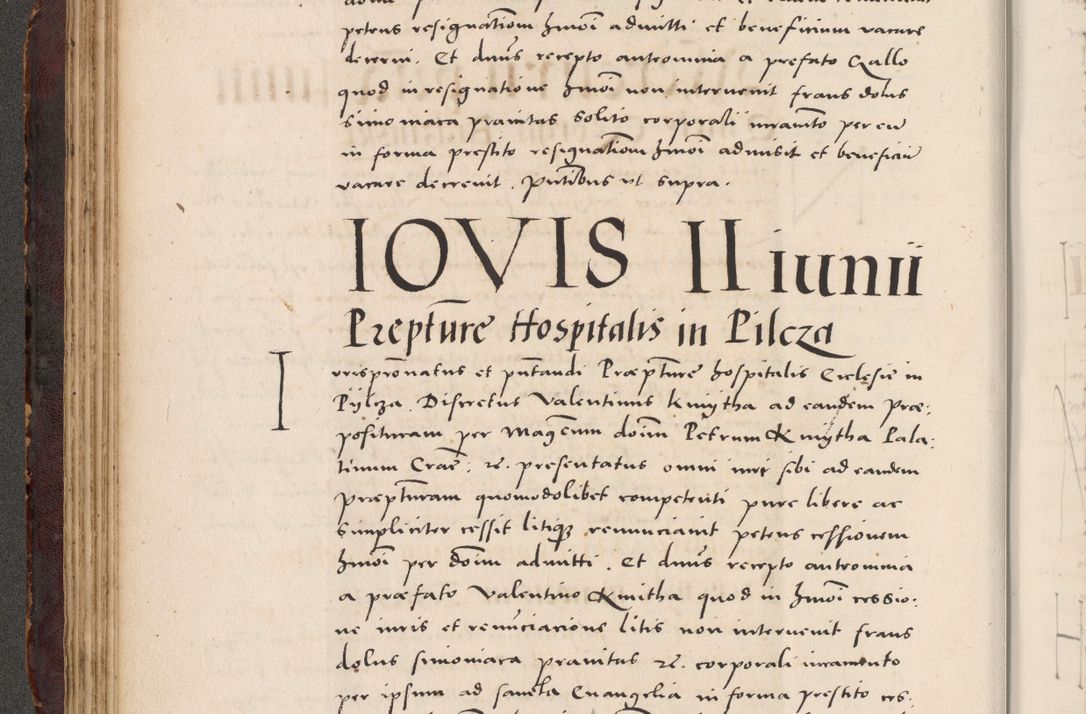 petens resignationem hmoi admitti et beneficium vacare
decerni. Et dnus recepto anteomnia a prefato Gallo
quod in resignatione hmoi non intervenit fraus dolus
simoniaca pravitas solito corporali iuramto per eu
in forma prestito resignationem hmoi admisit et beneficiu
vacare decrevit. Pntibus ut supra.
IOVIS II iunii
Prepture Hospitalis in Pilcza
Iurispronatus et pntandi Præpture hospitalis Ecclesie in
Pylcza. Discretus Valentinus Kmytha ad eandem Præ-
posituram per Magcum doim Petrum Kmytha Pala-
tinum Crac: &c. presentatus omni iuri sibi ad eandem
præpturam quomodolibet competenti pure libere ac
simpliciter cessit litiqz renunciavit petens cessionem
hmoi per doim admitti. Et dnus recepto anteomnia
a præfato Valentino Kmitha quod in hmoi cessio-
ne iuris et renunciacione litis non intervenit fraus
dolus simoniaca pravitas &c. corporali iuramento
per ipsum ad sancta Euangelia in forma prestito ces-